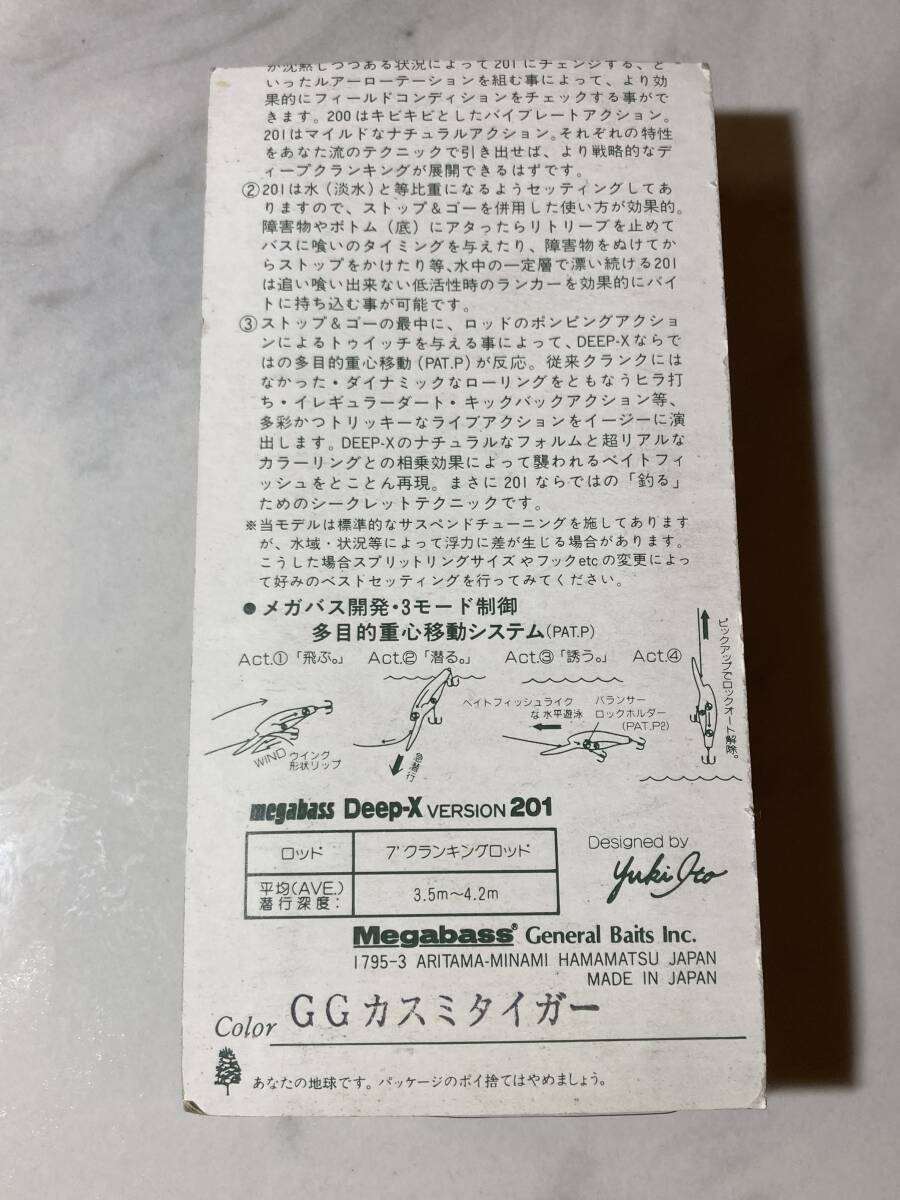 が沈黙しつつある状況によって201にチェンジする、と
いったルアーローテーションを組む事によって、より効
果的にフィールドコンディションをチェックする事がで
きます。200はキビキビとしたバイブレートアクション。
201はマイルドなナチュラルアクション。それぞれの特性
をあなた流のテクニックで引き出せば、より戦略的なデ
ィープクランキングが展開できるはずです。
②201は水(淡水)と等比重になるようセッティングしてあ
りますので、ストップ&ゴーを併用した使い方が効果的。
障害物やボトム(底)にアタったらリトリーブを止めて
バスに喰いのタイミングを与えたり、障害物をぬけてか
らストップをかけたり等、水中の一定層で漂い続ける201
は追い喰い出来ない低活性時のランカーを効果的にバイ
トに持ち込む事が可能です。
③ストップ&ゴーの最中に、ロッドのポンピングアクショ
ンによるトゥイッチを与える事によって、DEEP-Xならで
はの多目的重心移動(PAT.P)が反応。従来クランクには
なかった・ダイナミックなローリングをともなうヒラ打
ち・イレギュラーダート・キックバックアクション等、
多彩かつトリッキーなライブアクションをイージーに演
出します。DEEP-Xのナチュラルなフォルムと超リアルな
カラーリングとの相乗効果によって襲われるベイトフィ
ッシュをとことん再現。まさに201ならではの「釣る」
ためのシークレットテクニックです。
※当モデルは標準的なサスペンドチューニングを施してあります
が、水域・状況等によって浮力に差が生じる場合があります。
こうした場合スプリットリングサイズやフックetcの変更によっ
て好みのベストセッティングを行ってみてください。
●メガバス開発・3モード制御
多目的重心移動システム(PAT.P)
Act.①「飛ぶ。」 Act.②「潜る。」 Act.③「誘う。」 Act.④
WIND ウイング
形状リップ
急潜行
ベイトフィッシュライク
な水平遊泳
バランサー
ロックホルダー
(PAT.P2)
ピックアップでロックオート解除。
megabass Deep-X VERSION 201
ロッド 7'クランキングロッド
平均(AVE.)
潜行深度: 3.5m〜4.2m
Designed by
Yuki Ito
Megabass® General Baits Inc.
1795-3 ARITAMA-MINAMI HAMAMATSU JAPAN
MADE IN JAPAN
Color GGカスミタイガー
あなたの地球です。パッケージのポイ捨てはやめましょう。